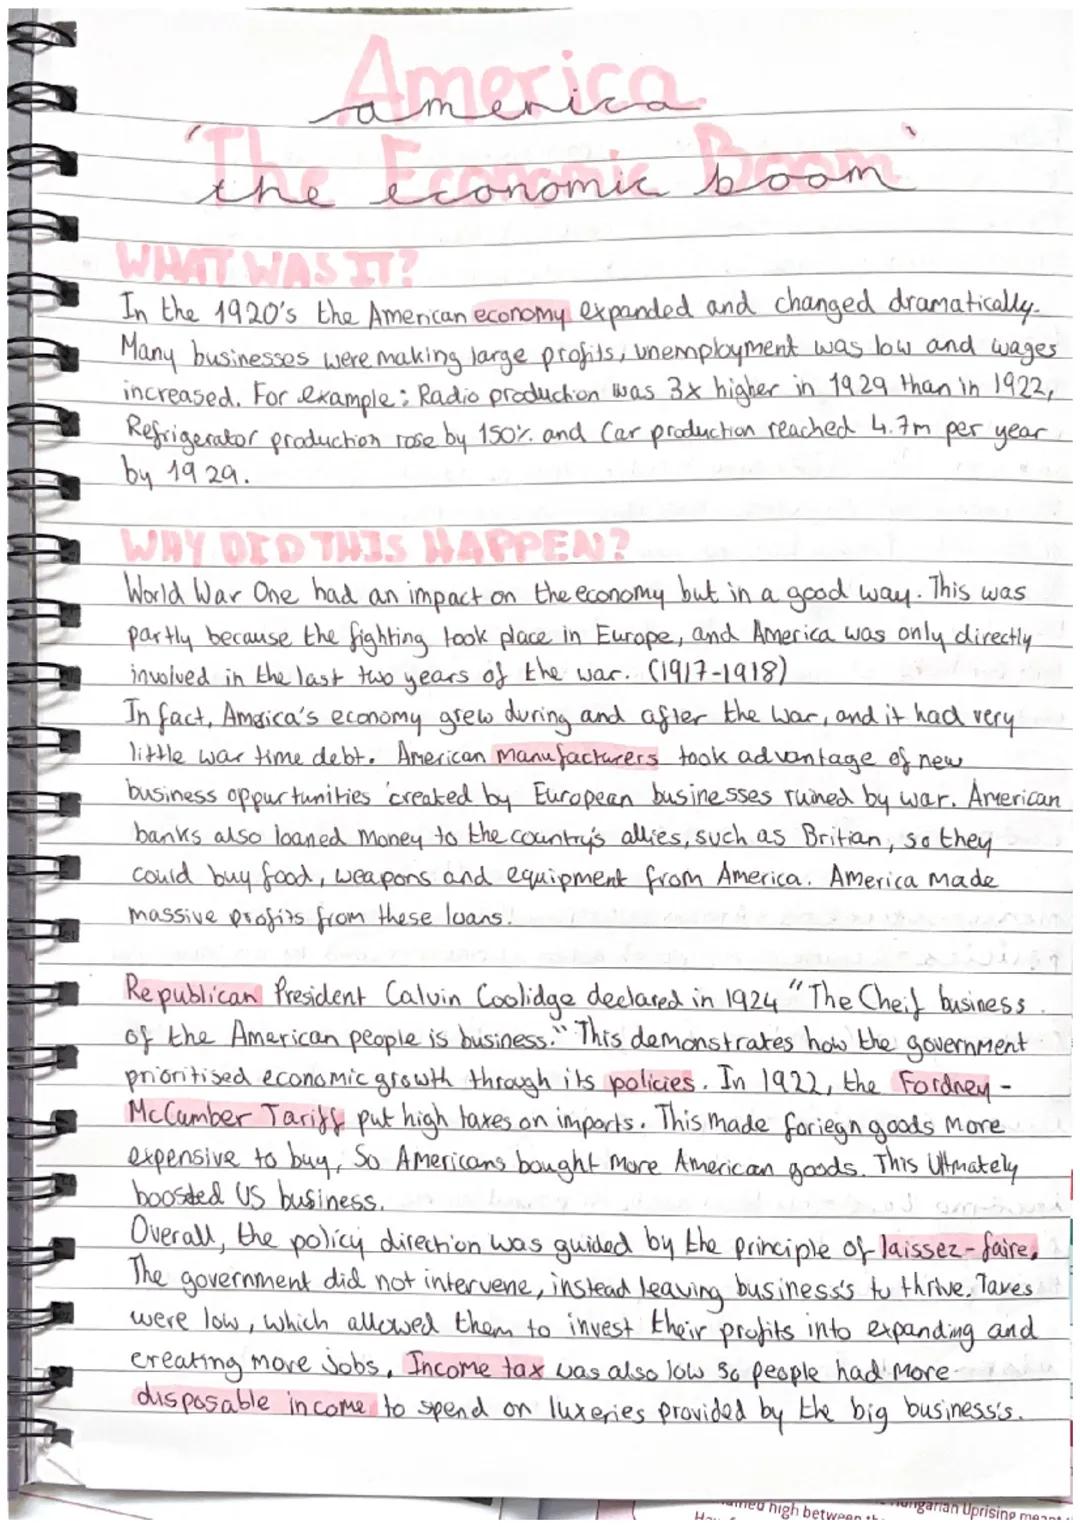 America
america
'The Economic Boom'
the economic boom
WHAT WAS IT?
In the 1920's the American economy expanded and changed dramatically.
Many businesses were making large profits, unemployment was low and wages
increased. For example: Radio production was 3x higher in 1929 than in 1922,
Refrigerator production rose by 150% and Car production reached 4.7m per year
by 1929.
WHY DID THIS HAPPEN?
World War One had an impact on the economy but in a good way. This was
partly because the fighting took place in Europe, and America was only directly
involved in the last two years of the war. (1917-1918)
In fact, America's economy grew during and after the war, and it had very
little war time debt. American manufacturers took advantage of new
business oppurtunities created by European businesses ruined by war. American
banks also loaned money to the country's allies, such as Britian, so they
could buy food, weapons and equipment from America. America made
massive profits from these loans.
Republican President Calvin Coolidge declared in 1924 "The Cheif business
of the American people is business." This demonstrates how the government
prioritised economic growth through its policies. In 1922, the Fordney-
McCumber Tariff put high taxes on imports. This made foriegn goods more
expensive to buy, So Americans bought more American goods. This Ultmately
boosted US business.
Overall, the policy direction was guided by the principle of laissez-faire.
The government did not intervene, instead leaving business's to thrive. Taxes
were low, which allowed them to invest their profits into expanding and
creating more jobs. Income tax was also low so people had more
disposable income to spend on luxeries provided by the big business's.
high between
Hungarian Uprising